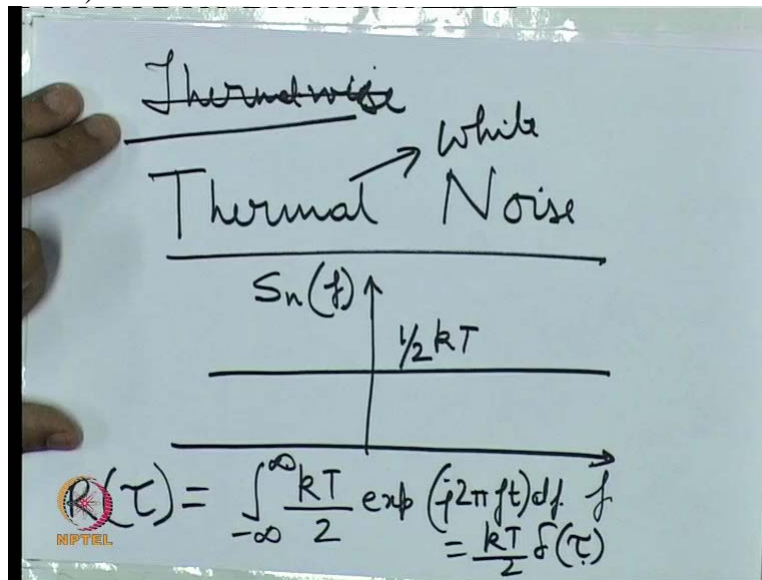 Thermalwise
White
Thermal Noise
Sn(f)
1/2 kT
R(τ) = ∫_{-∞}^{∞} kT/2 exp (j2πft)df f
= kT/2 δ(τ)
NPTEL